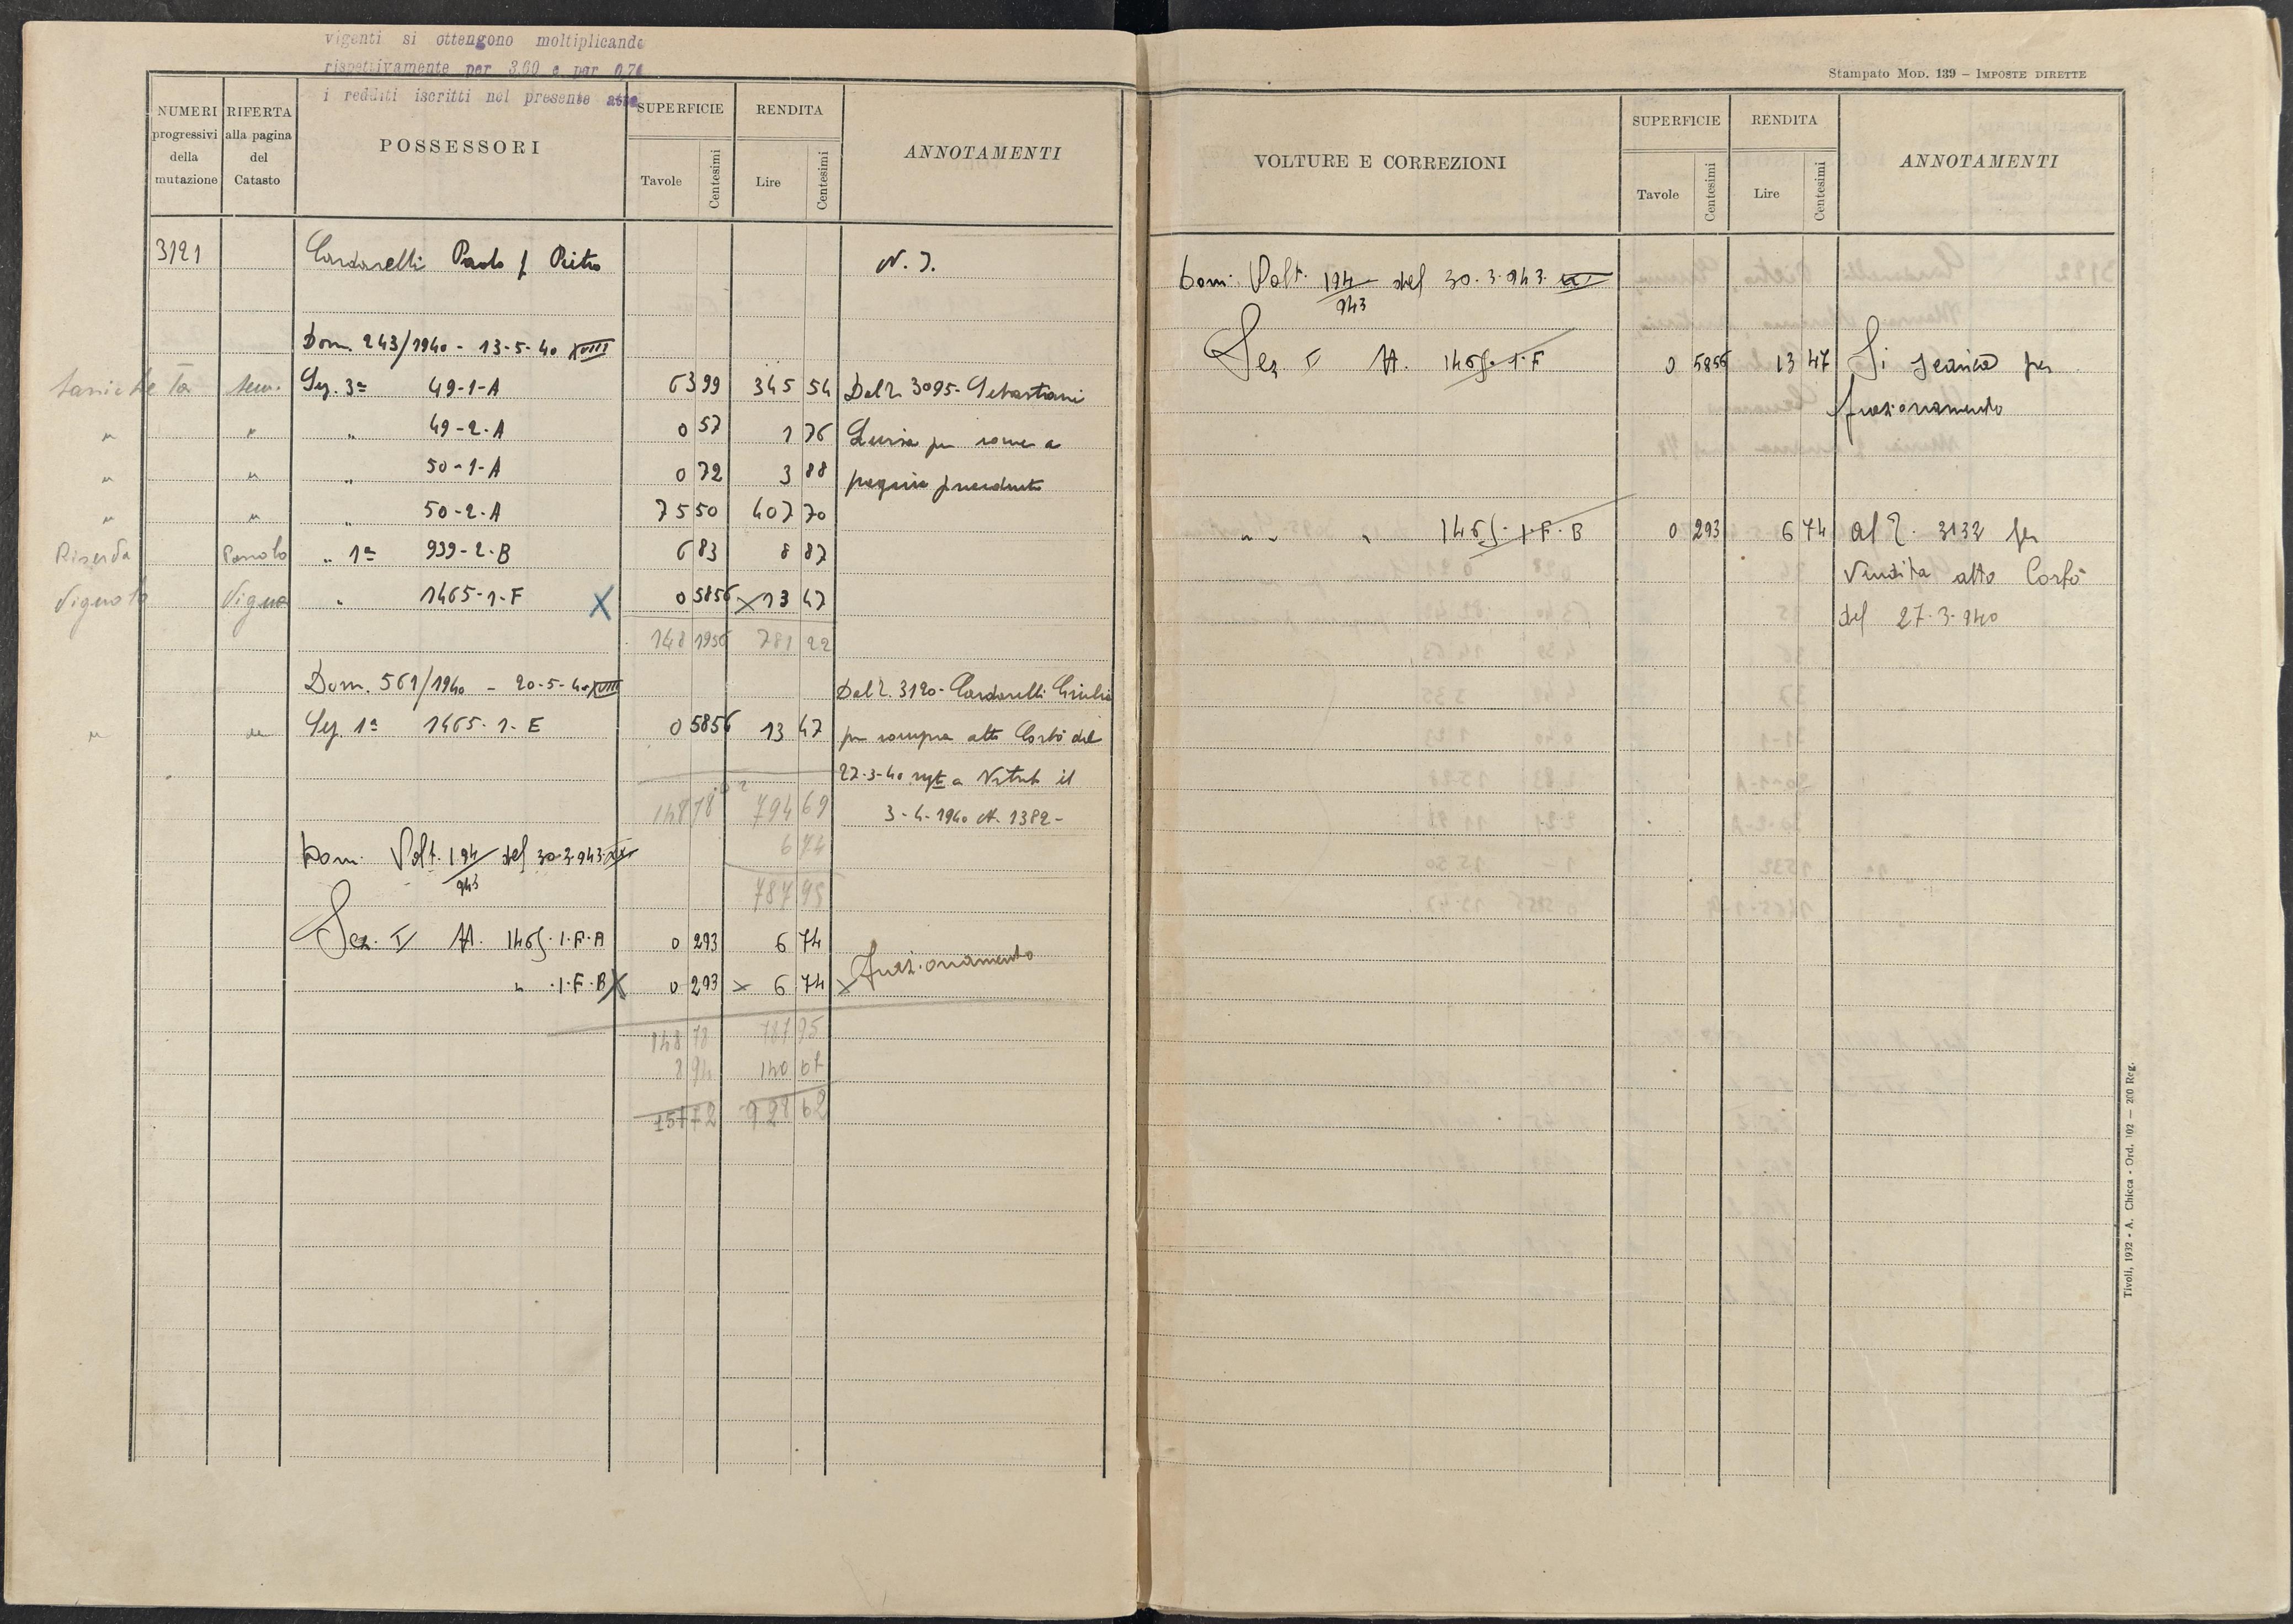 vigenti si ottengono moltiplicando
rispettivamente per 3.60 e per 0,70
i redditi iscritti nel presente
NUMERI progressivi della mutazione
RIFERTA alla pagina del Catasto
POSSESSORI
SUPERFICIE
Tavole Centesimi
RENDITA
Lire Centesimi
ANNOTAMENTI
3121 Cardarelli Paolo f Pietro N. I.
Dom. 243/1940 - 13-5-40 XVIII
sem. Sez. 3ª 49-1-A 63 99 345 54 Dal N. 3095 - Sebastiani
" " " 49-2-A 0 57 1 76 Luisa per come a
" " " 50-1-A 0 72 3 88 pagina precedente
" " " 50-2-A 75 50 407 70
Riserva " 1ª 939-2-B 6 83 8 87
Vignola Vigna " 1465-1-F X 0 5856 X 13 47
148 1956 781 22
Dom. 561/1940 - 20-5-40 XVIII Dal N. 3120 - Cardarelli Giulio
" " Sez. 1ª 1465-1-E 0 5856 13 47 per compra atto Corbò del
27-3-40 regto a Viterbo il
148 78 794 69 3-4-1940 N. 1382-
6 74
Dom. Volt. 194/943 del 30-3-943 XXI
787 95
Sez. I N. 1465.1.F.A 0 293 6 74 frazionamento
" .1.F.B X 0 293 X 6 74 X
148 78 787 95
8 94 140 67
157 72 928 62
Stampato Mod. 139 – Imposte Dirette
VOLTURE E CORREZIONI
SUPERFICIE
Tavole Centesimi
RENDITA
Lire Centesimi
ANNOTAMENTI
Dom. Volt. 194/943 del 30.3.943. XXI
Sez I N. 1465.1.F 0 5856 13 47 Si scarica per
frazionamento
" " " 1465.1.F.B 0 293 6 74 al N. 3132 per
Vendita atto Corbò
del 27.3.940
Tivoli, 1932 - A. Chicca - Ord. 102 — 200 Reg.